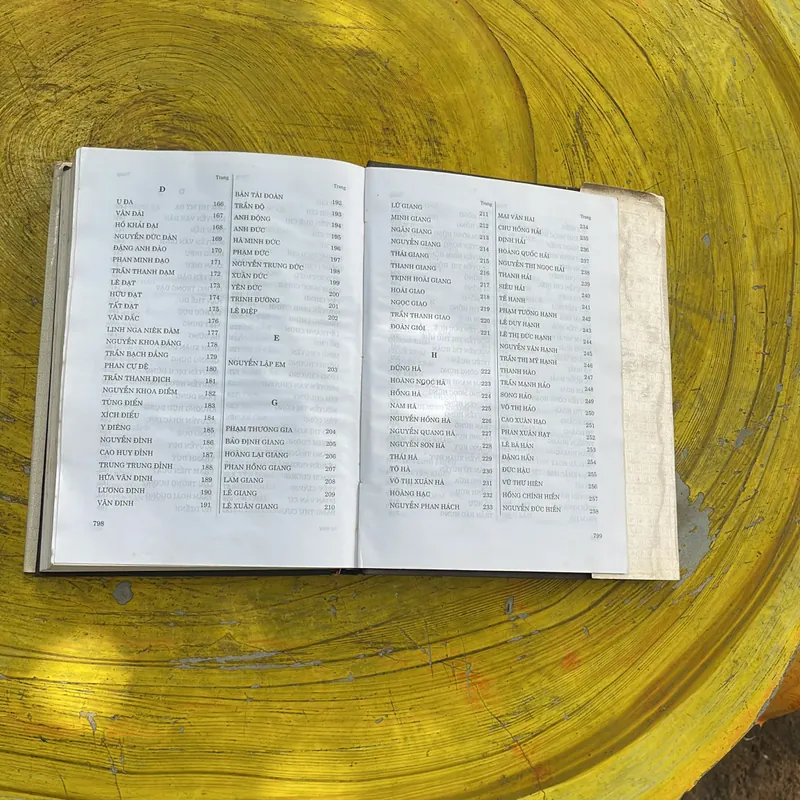 Trang
Đ
Ụ ĐA 166
VÂN ĐÀI 167
HỒ KHẢI ĐẠI 168
NGUYỄN ĐỨC ĐÀN 169
ĐẶNG ANH ĐÀO 170
PHAN MINH ĐẠO 171
TRẦN THANH ĐẠM 172
LÊ ĐẠT 173
HỮU ĐẠT 174
TẤT ĐẠT 175
VĂN ĐẮC 176
LINH NGA NIÊK ĐĂM 177
NGUYỄN KHOA ĐĂNG 178
TRẦN BẠCH ĐẰNG 179
PHAN CỰ ĐỆ 180
TRẦN THANH ĐỊCH 181
NGUYỄN KHOA ĐIỀM 182
TÙNG ĐIỂN 183
XÍCH ĐIỂU 184
Y ĐIÊNG 185
NGUYÊN ĐÌNH 186
CAO HUY ĐỈNH 187
TRUNG TRUNG ĐỈNH 188
HỨA VĂN ĐỊNH 189
LƯƠNG ĐỊNH 190
VĂN ĐỊNH 191
798
Trang
BÀN TÀI ĐOÀN 192
TRẦN ĐỘ 193
ANH ĐỘNG 194
ANH ĐỨC 195
HÀ MINH ĐỨC 196
PHẠM ĐỨC 197
NGUYỄN TRUNG ĐỨC 198
XUÂN ĐỨC 199
YÊN ĐỨC 200
TRINH ĐƯỜNG 201
LÊ ĐIỆP 202
E
NGUYỄN LẬP EM 203
G
PHẠM THƯỜNG GIA 204
BẢO ĐỊNH GIANG 205
HOÀNG LẠI GIANG 206
PHAN HỒNG GIANG 207
LAM GIANG 208
LÊ GIANG 209
LÊ XUÂN GIANG 210
Trang
LỮ GIANG 211
MINH GIANG 212
NGÂN GIANG 213
NGUYÊN GIANG 214
THÁI GIANG 215
THANH GIANG 216
TRỊNH HOÀI GIANG 217
HOÀI GIAO 218
NGỌC GIAO 219
TRẦN THANH GIAO 220
ĐOÀN GIỎI 221
H
DŨNG HÀ 222
HOÀNG NGỌC HÀ 223
HỒNG HÀ 224
NAM HÀ 225
NGUYỄN HỒNG HÀ 226
NGUYỄN QUANG HÀ 227
NGUYỄN SƠN HÀ 228
THÁI HÀ 229
TÔ HÀ 230
VÕ THỊ XUÂN HÀ 231
HOÀNG HẠC 232
NGUYỄN PHAN HÁCH 233
Trang
MAI VĂN HAI 234
CHU HỒNG HẢI 235
ĐỊNH HẢI 236
HOÀNG QUỐC HẢI 237
NGUYỄN THỊ NGỌC HẢI 238
THANH HẢI 239
TẾ HANH 241
PHẠM TƯỜNG HẠNH 242
LÊ DUY HẠNH 243
LÊ THỊ ĐỨC HẠNH 244
NGUYỄN VĂN HẠNH 245
TRẦN THỊ MỸ HẠNH 246
THANH HÀO 247
TRẦN MẠNH HẢO 248
SONG HẢO 249
VÕ THỊ HẢO 250
CAO XUÂN HẠO 251
PHAN XUÂN HẠT 252
LÊ BÁ HÁN 253
ĐẶNG HẤN 254
ĐỨC HẬU 255
VŨ THƯ HIÊN 256
HỒNG CHINH HIỀN 257
NGUYỄN ĐỨC HIỀN 258
799